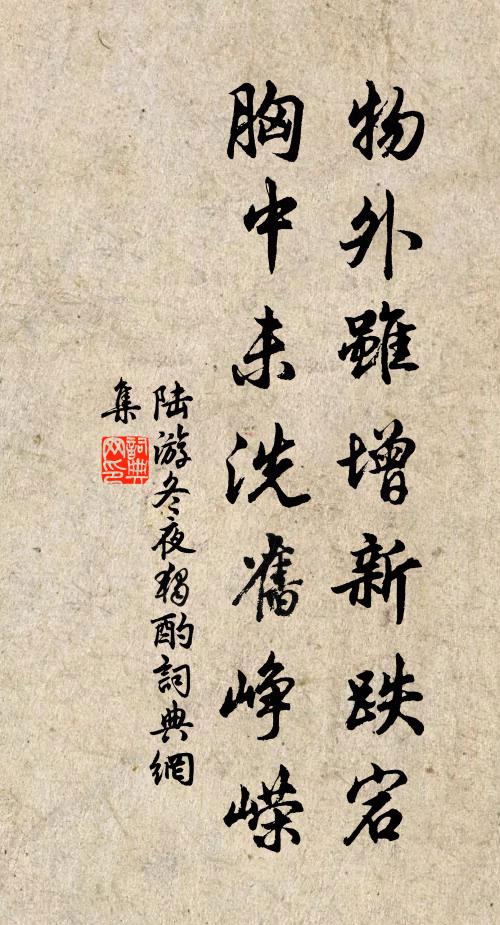 物外雖增新跌宕
胸中未洗舊崢嶸
陆游冬夜獨酌詞典網
集
詞典
网印